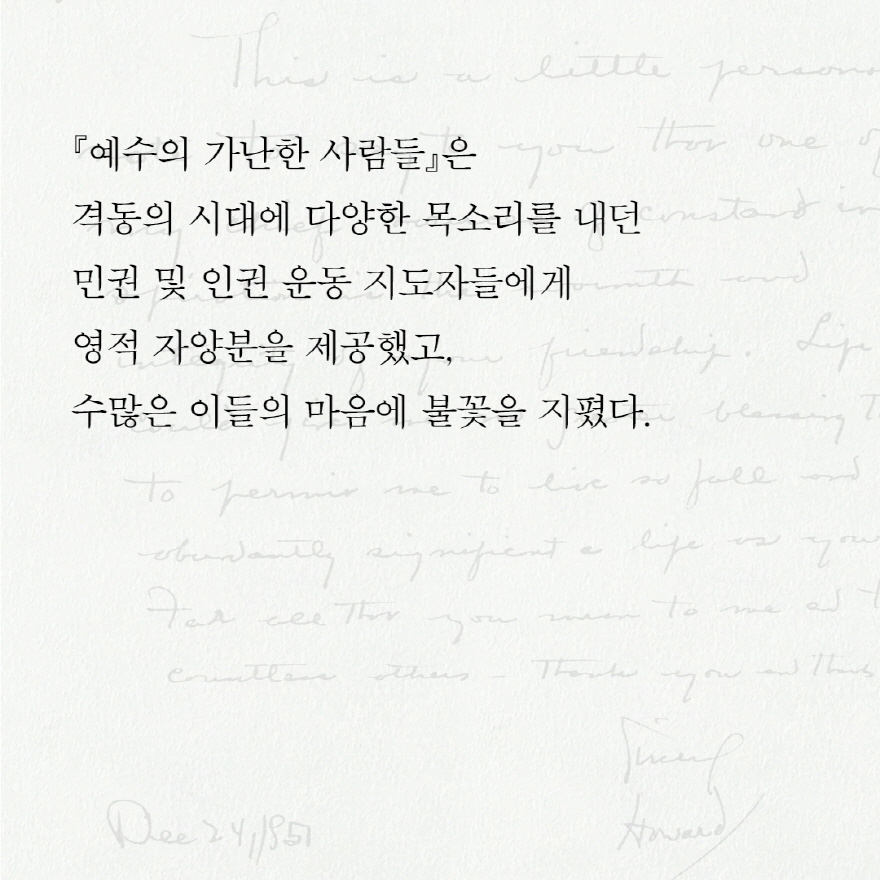 This is a little person
『예수의 가난한 사람들』은
you that one of
격동의 시대에 다양한 목소리를 내던
constant in
민권 및 인권 운동 지도자들에게
and
영적 자양분을 제공했고,
integrity of your friendship. Life
수많은 이들의 마음에 불꽃을 지폈다.
could blessing
to permit me to live so full and
abundantly significant a life as you
For all that you mean to me and
countless others - Thank you and thank
Sincerely
Dec 24, 1951
Howard